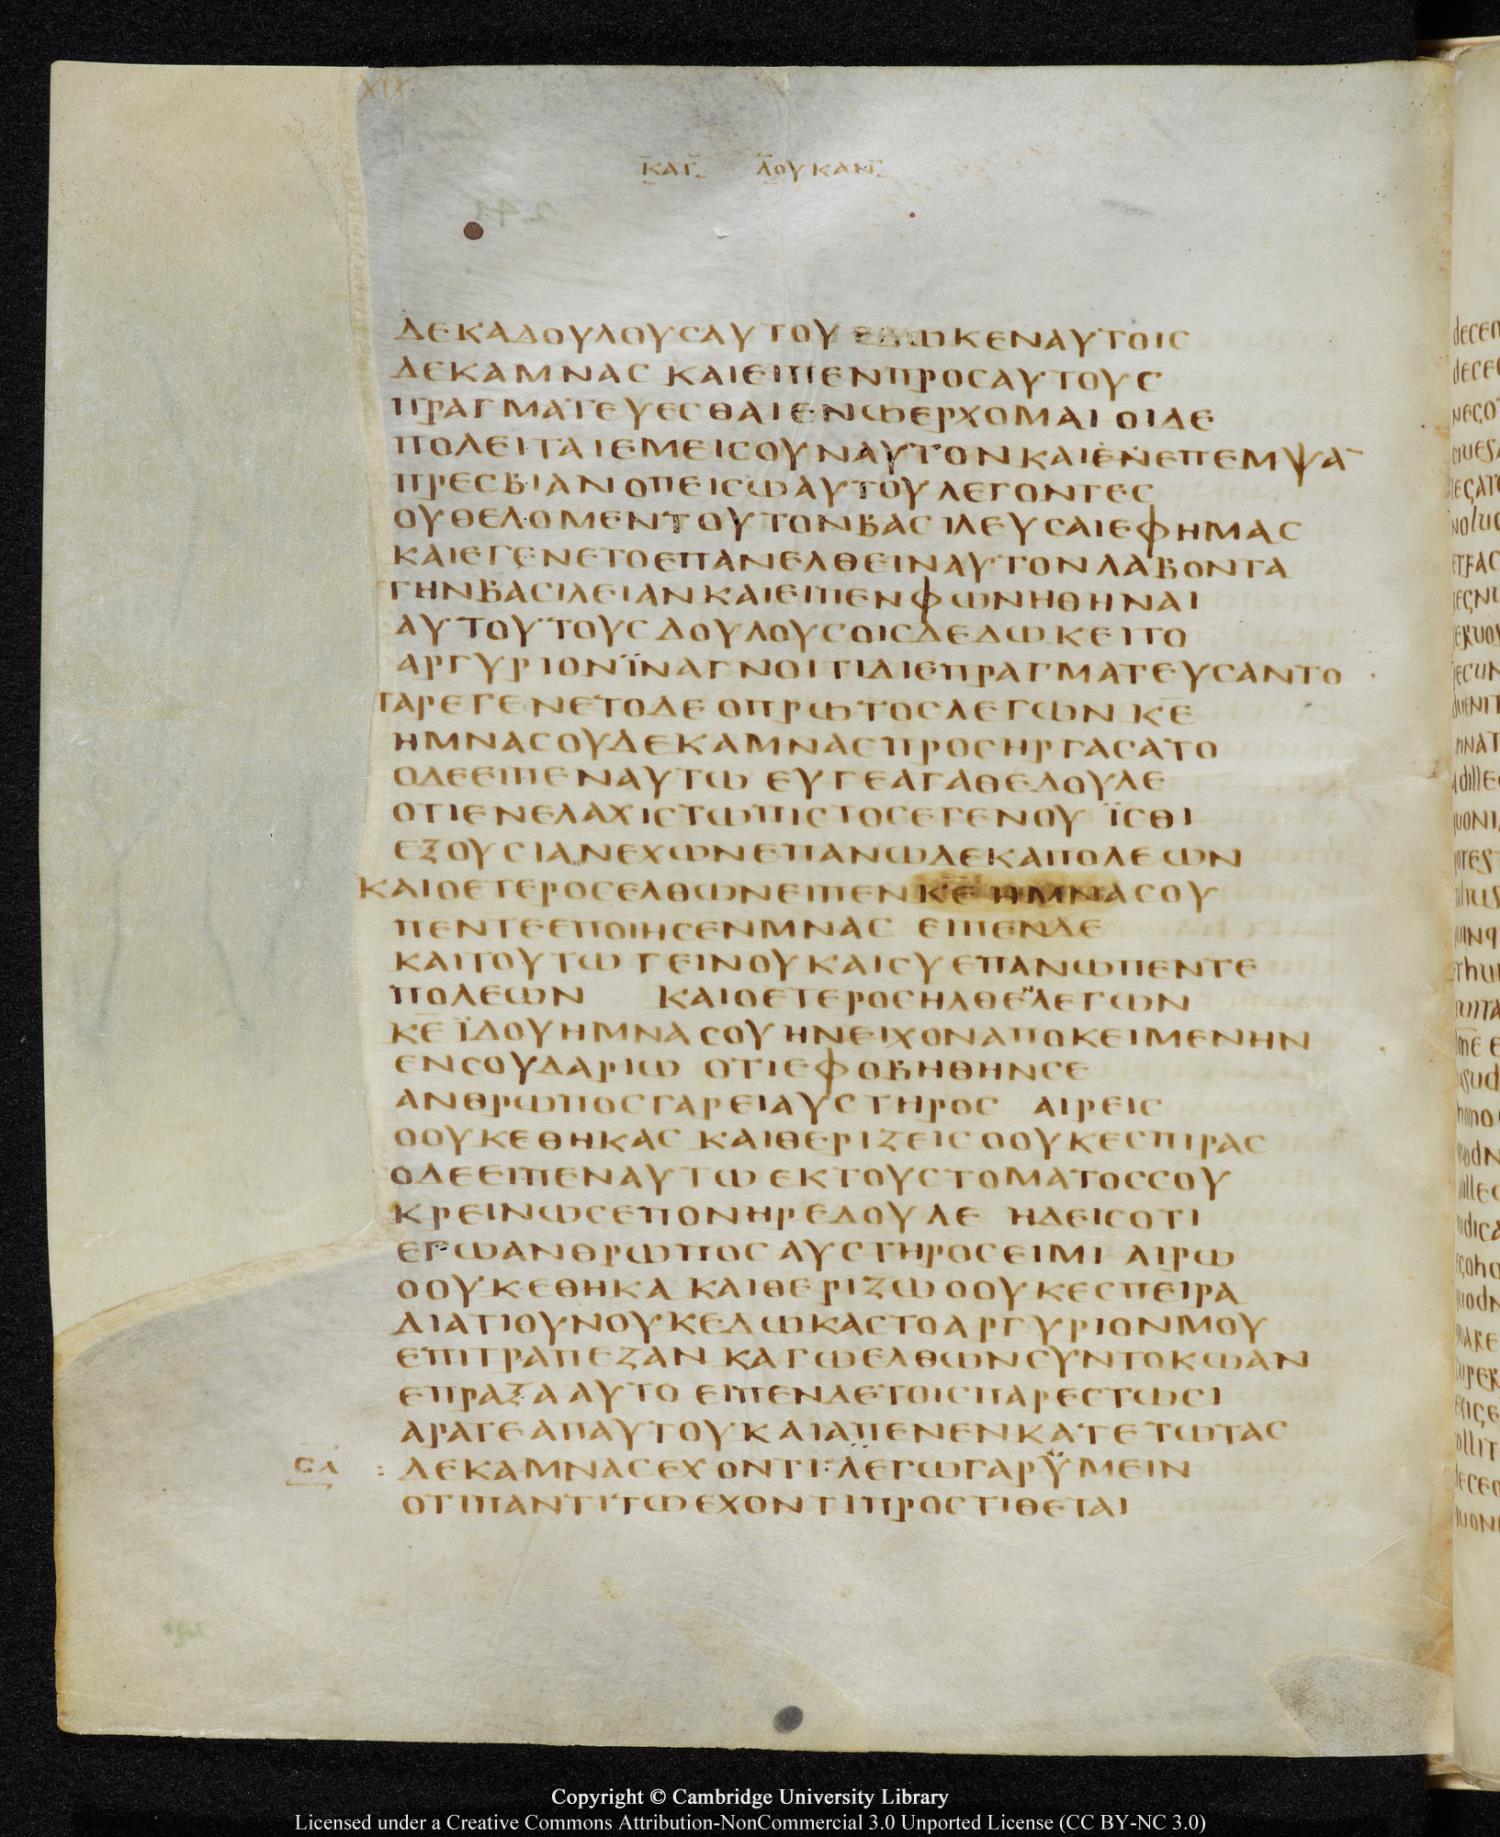 XIX
ΚΑΤ ΛΟΥΚΑΝ
ΔΕΚΑΔΟΥΛΟΥϹΑΥΤΟΥ ΕΔΩΚΕΝΑΥΤΟΙϹ
ΔΕΚΑΜΝΑϹ ΚΑΙΕΙΠΕΝΠΡΟϹΑΥΤΟΥϹ
ΠΡΑΓΜΑΤΕΥΕϹΘΑΙΕΝΩΕΡΧΟΜΑΙ ΟΙΔΕ
ΠΟΛΕΙΤΑΙΕΜΕΙϹΟΥΝΑΥΤΟΝΚΑΙΕΝΕΠΕΜΨΑ¯
ΠΡΕϹΒΙΑΝΟΠΕΙϹΩΑΥΤΟΥΛΕΓΟΝΤΕϹ
ΟΥΘΕΛΟΜΕΝΤΟΥΤΟΝΒΑϹΙΛΕΥϹΑΙΕΦΗΜΑϹ
ΚΑΙΕΓΕΝΕΤΟΕΠΑΝΕΛΘΕΙΝΑΥΤΟΝΛΑΒΟΝΤΑ
ΤΗΝΒΑϹΙΛΕΙΑΝΚΑΙΕΙΠΕΝΦΩΝΗΘΗΝΑΙ
ΑΥΤΟΥΤΟΥϹΔΟΥΛΟΥϹΟΙϹΔΕΔΩΚΕΙΤΟ
ΑΡΓΥΡΙΟΝΪΝΑΓΝΟΙΤΙΔΙΕΠΡΑΓΜΑΤΕΥϹΑΝΤΟ
ΠΑΡΕΓΕΝΕΤΟΔΕΟΠΡΩΤΟϹΛΕΓΩΝ ΚΕ
ΗΜΝΑϹΟΥΔΕΚΑΜΝΑϹΠΡΟϹΗΡΓΑϹΑΤΟ
ΟΔΕΕΙΠΕΝΑΥΤΩ ΕΥΓΕΑΓΑΘΕΔΟΥΛΕ
ΟΤΙΕΝΕΛΑΧΙϹΤΩΠΙϹΤΟϹΕΓΕΝΟΥ ΪϹΘΙ
ΕΞΟΥϹΙΑΝΕΧΩΝΕΠΑΝΩΔΕΚΑΠΟΛΕΩΝ
ΚΑΙΟΕΤΕΡΟϹΕΛΘΩΝΕΙΠΕΝΚΕ ΗΜΝΑϹΟΥ
ΠΕΝΤΕΕΠΟΙΗϹΕΝΜΝΑϹ ΕΙΠΕΝΔΕ
ΚΑΙΤΟΥΤΩ ΓΕΙΝΟΥΚΑΙϹΥΕΠΑΝΩΠΕΝΤΕ
ΠΟΛΕΩΝ ΚΑΙΟΕΤΕΡΟϹΗΛΘΕΝΛΕΓΩΝ
ΚΕ ΪΔΟΥΗΜΝΑϹΟΥΗΝΕΙΧΟΝΑΠΟΚΕΙΜΕΝΗΝ
ΕΝϹΟΥΔΑΡΙΩ ΟΤΙΕΦΟΒΗΘΗΝϹΕ
ΑΝΘΡΩΠΟϹΓΑΡΕΙΑΥϹΤΗΡΟϹ ΑΙΡΕΙϹ
ΟΟΥΚΕΘΗΚΑϹ ΚΑΙΘΕΡΙΖΕΙϹΟΟΥΚΕϹΠΙΡΑϹ
ΟΔΕΕΙΠΕΝΑΥΤΩ ΕΚΤΟΥϹΤΟΜΑΤΟϹϹΟΥ
ΚΡΕΙΝΩϹΕΠΟΝΗΡΕΔΟΥΛΕ ΗΔΕΙϹΟΤΙ
ΕΓΩΑΝΘΡΩΠΟϹΑΥϹΤΗΡΟϹΕΙΜΙ ΑΙΡΩ
ΟΟΥΚΕΘΗΚΑ ΚΑΙΘΕΡΙΖΩΟΟΥΚΕϹΠΕΙΡΑ
ΔΙΑΤΙΟΥΝΟΥΚΕΔΩΚΑϹΤΟΑΡΓΥΡΙΟΝΜΟΥ
ΕΠΙΤΡΑΠΕΖΑΝ ΚΑΓΩΕΛΘΩΝϹΥΝΤΟΚΩΑΝ
ΕΠΡΑΞΑΑΥΤΟ ΕΙΠΕΝΔΕΤΟΙϹΠΑΡΕϹΤΩϹΙ
ΑΡΑΤΕΑΠΑΥΤΟΥΚΑΙΑΠΕΝΕΝΚΑΤΕΤΩΤΑϹ
ϹΛ : ΔΕΚΑΜΝΑϹΕΧΟΝΤΙ:ΛΕΓΩΓΑΡΫΜΕΙΝ
ΟΤΙΠΑΝΤΙΤΩΕΧΟΝΤΙΠΡΟϹΤΙΘΕΤΑΙ
Copyright © Cambridge University Library
Licensed under a Creative Commons Attribution-NonCommercial 3.0 Unported License (CC BY-NC 3.0)